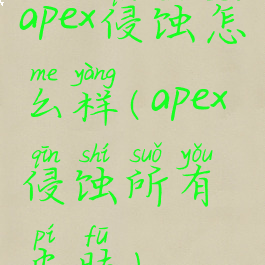 apex侵蚀怎
me yàng
么样(apex
qīn shí suǒ yǒu
侵蚀所有
pí fū